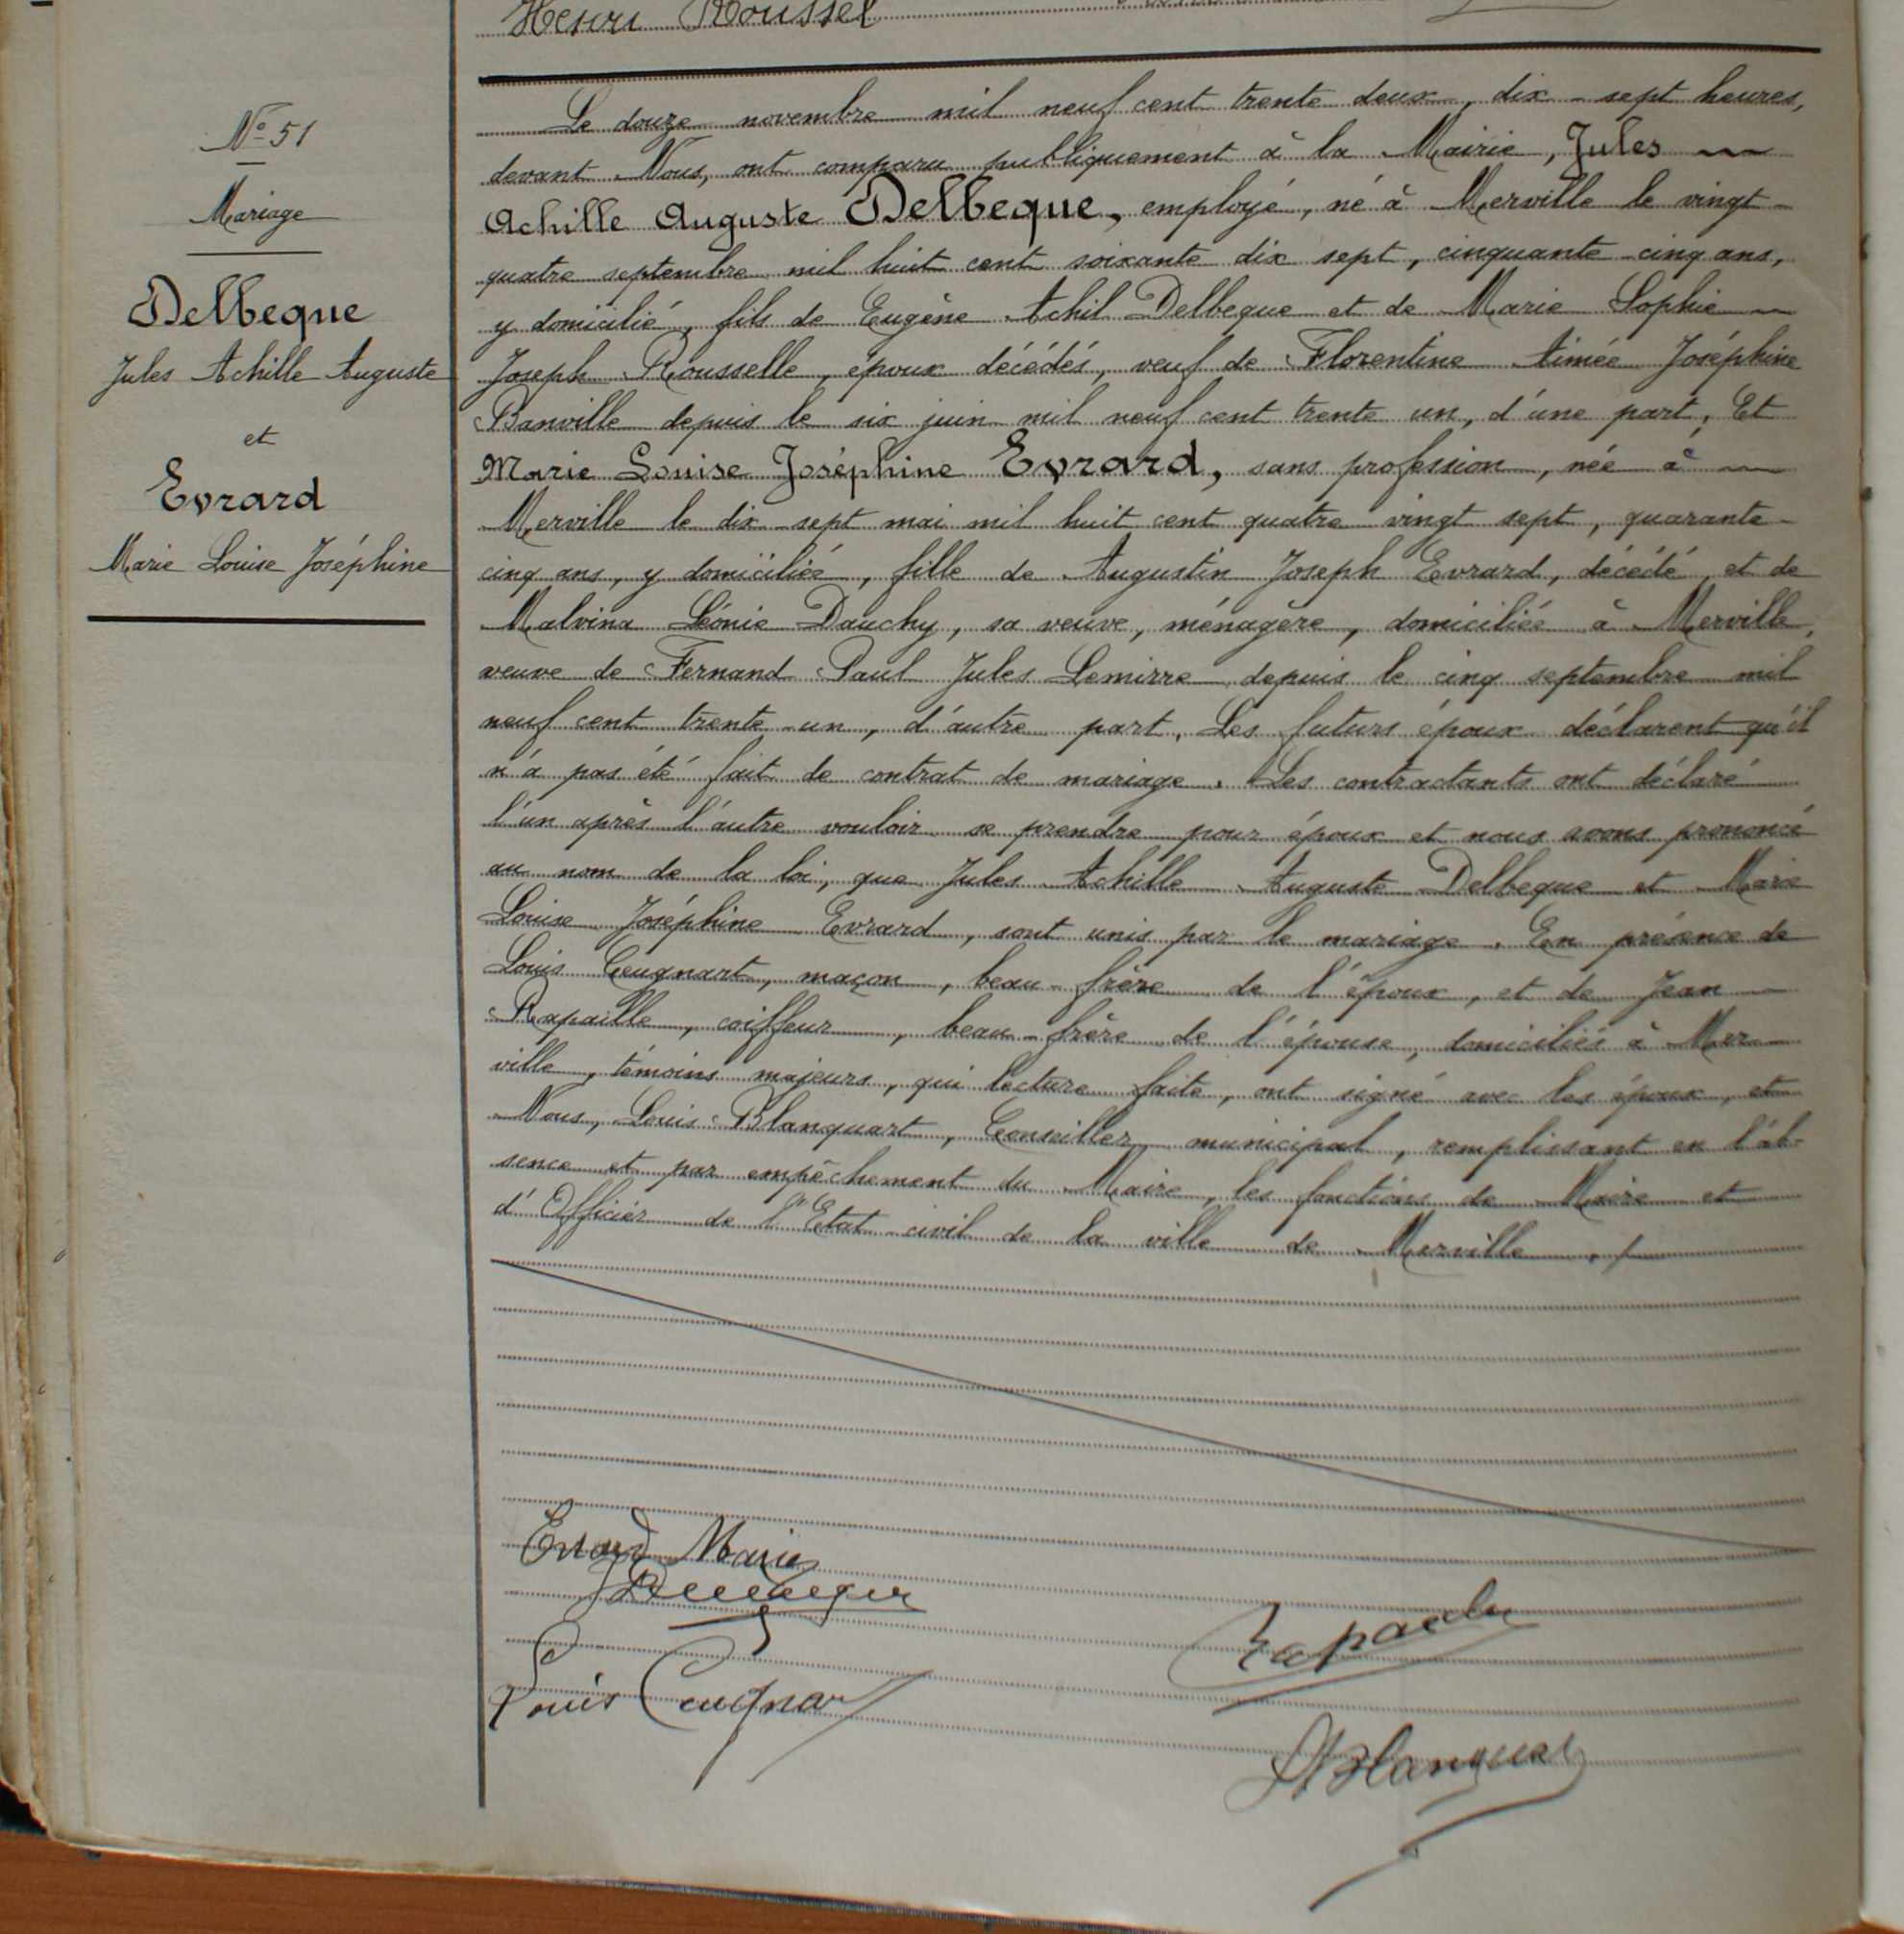 Henri Roussel
N° 51
Mariage
Delbeque
Jules Achille Auguste
et
Evrard
Marie Louise Joséphine
Le douze novembre mil neuf cent trente deux, dix-sept heures,
devant Nous, ont comparu publiquement à la Mairie, Jules
Achille Auguste Delbeque, employé, né à Merville le vingt-
quatre septembre mil huit cent soixante dix sept, cinquante-cinq ans,
y domicilié, fils de Eugène Achil Delbeque et de Marie Sophie
Joseph Rousselle, époux décédés, veuf de Florentine Aimée Joséphine
Banville depuis le six juin mil neuf cent trente un, d'une part. Et
Marie Louise Joséphine Evrard, sans profession, née à
Merville le dix-sept mai mil huit cent quatre vingt sept, quarante-
cinq ans, y domiciliée, fille de Augustin Joseph Evrard, décédé, et de
Malvina Léonie Dauchy, sa veuve, ménagère, domiciliée à Merville,
veuve de Fernand Paul Jules Lemirre depuis le cinq septembre mil
neuf cent trente-un, d'autre part. Les futurs époux déclarent qu'il
n'a pas été fait de contrat de mariage. Les contractants ont déclaré
l'un après l'autre vouloir se prendre pour époux et nous avons prononcé
au nom de la loi, que Jules Achille Auguste Delbeque et Marie
Louise Joséphine Evrard, sont unis par le mariage. En présence de
Louis Ceugnart, maçon, beau-frère de l'époux, et de Jean
Rapaille, coiffeur, beau-frère de l'épouse, domiciliés à Mer-
ville, témoins majeurs, qui lecture faite, ont signé avec les époux, et
Nous, Louis Blanquart, Conseiller municipal, remplissant en l'ab-
sence et par empêchement du Maire, les fonctions de Maire et
d'Officier de l'Etat-civil de la ville de Merville ./
Evrard Marie
JDelbeque
Rapaille
Louis Ceugnar
LBlanquar